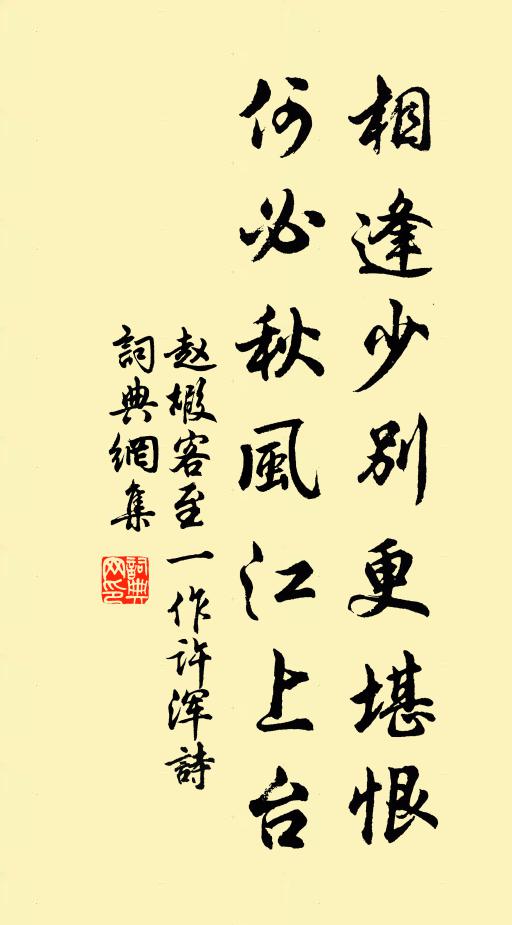 相逢少别更堪恨
何必秋風江上台
赵嘏客至一作许浑詩
詞典網集
詞典網印